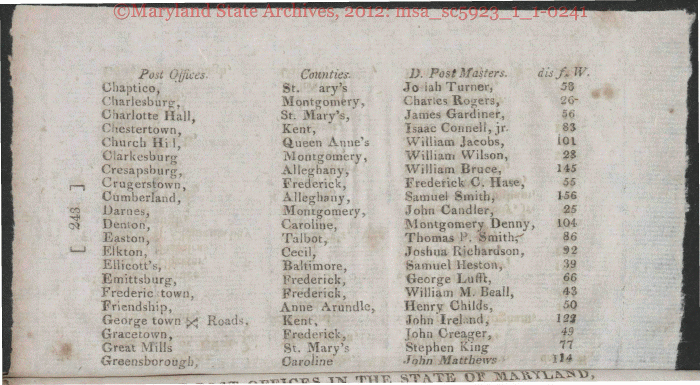 ©Maryland State Archives, 2012: msa_sc5923_1_1-0241
Post Offices. Counties. D. Post Masters. dis f. W.
Chaptico, St. ary's, Jo iah Turner, 58
Charlesburg, Montgomery, Charles Rogers, 26
Charlotte Hall, St. Mary's, James Gardiner, 56
Chestertown, Kent, Isaac Connell, jr. 83
Church Hill, Queen Anne's William Jacobs, 101
Clarkesburg Montgomery, William Wilson, 28
Cresapsburg, Alleghany, William Bruce, 145
Crugerstown, Frederick, Frederick C. Hase, 55
Cumberland, Alleghany, Samuel Smith, 156
Darnes, Montgomery, John Candler, 25
Denton, Caroline, Montgomery Denny, 104
Easton, Talbot, Thomas P. Smith, 86
Elkton, Cecil, Joshua Richardson, 92
Ellicott's, Baltimore, Samuel Heston, 39
Emittsburg, Frederick, George Lufft, 66
Frederic town, Frederick, William M. Beall, 43
Friendship, Anne Arundle, Henry Childs, 50
George town Roads, Kent, John Ireland, 122
Gracetown, Frederick, John Creager, 49
Great Mills St. Mary's Stephen King 77
Greensborough, Caroline John Matthews 114
[ 243 ]
OFFICES IN THE STATE OF MARYLAND,